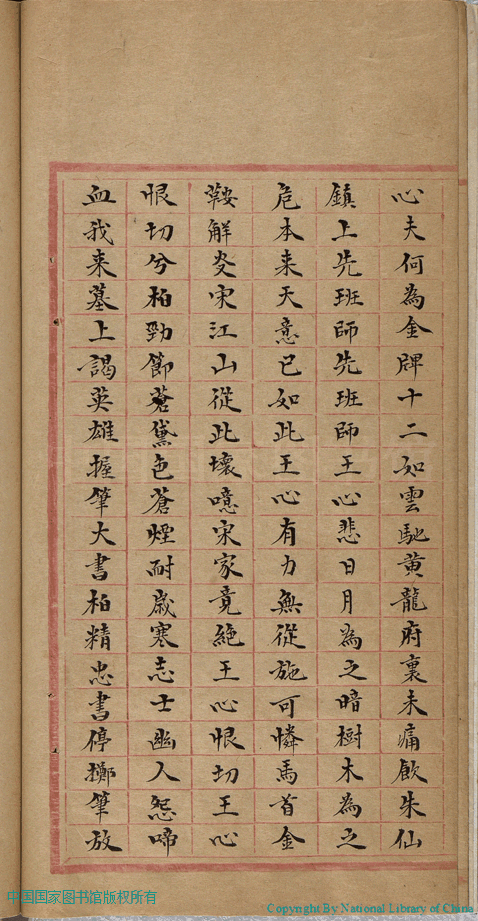 心夫何為金牌十二如雲馳黃龍府裏未痛飲朱仙
鎮上先班師先班師王心悲日月為之暗樹木為之
危本来天意已如此王心有力無從施可憐馬首金
鞍解炎宋江山從此壞噫宋家竟絕王心恨切王心
恨切兮柏勁節蒼黛色蒼煙耐歲寒志士幽人怨啼
血我来墓上謁英雄握筆大書柏精忠書停擲筆放
中国国家图书馆版权所有
Copyright By National Library of China